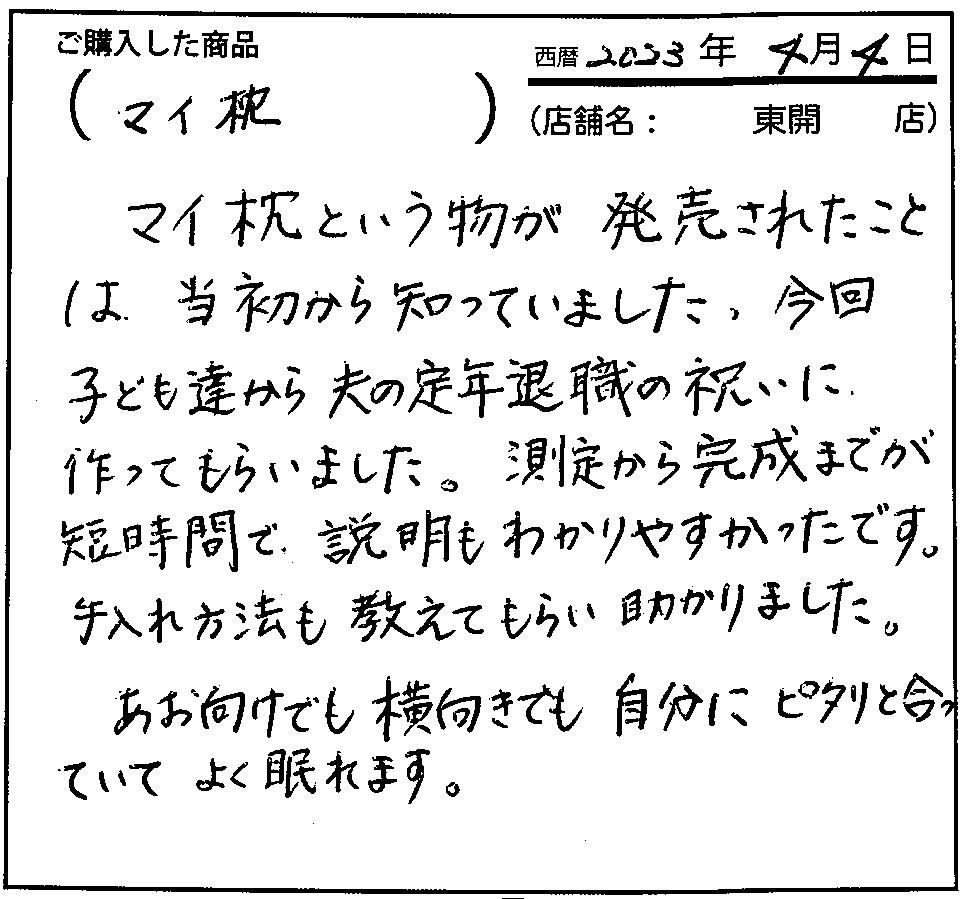 ご購入した商品
西暦 2023年 4月4日
(マイ枕)
(店舗名： 東開 店)
マイ枕という物が 発売されたこと
は 当初から知っていました、今回
子ども達から夫の定年退職の祝いに
作ってもらいました。測定から完成までが
短時間で 説明もわかりやすかったです。
手入れ方法も教えてもらい助かりました。
あお向けでも横向きでも自分にピタリと合っ
ていて よく眠れます。